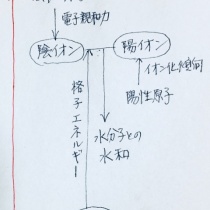 電子親和力
陰イオン
陽イオン
イオン化傾向
陽性原子
格子エネルギー
水分子との
水和